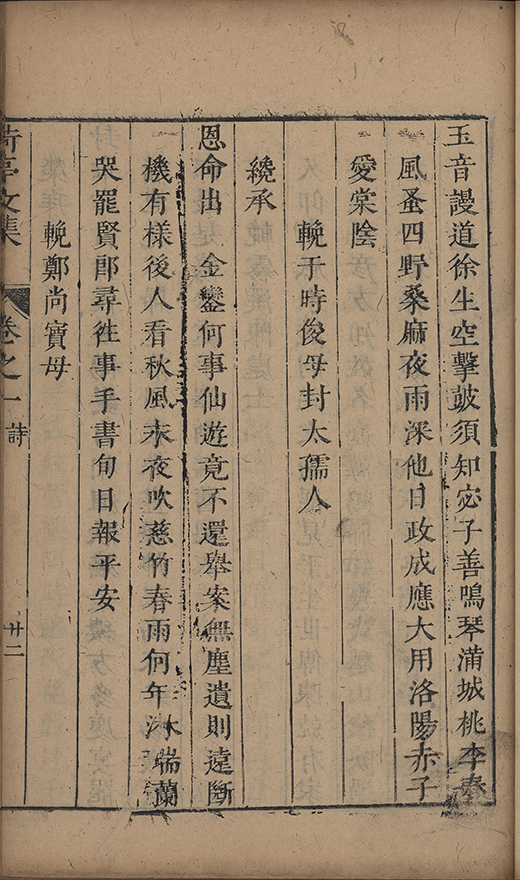 玉音謾道徐生空擊皷須知宓子善鳴琴滿城桃李春
風蚤四野桑麻夜雨深他日政成應大用洛陽赤子
愛棠陰
輓于時俊母封太孺人
纔承
恩命出金鑾何事仙遊竟不還舉案無塵遺則遠斷
機有樣後人看秋風末夜吹慈竹春雨何年沐瑞蘭
哭罷賢郎尋徃事手書旬日報平安
輓鄭尚寶母
亭文集
卷之一
詩
廿二